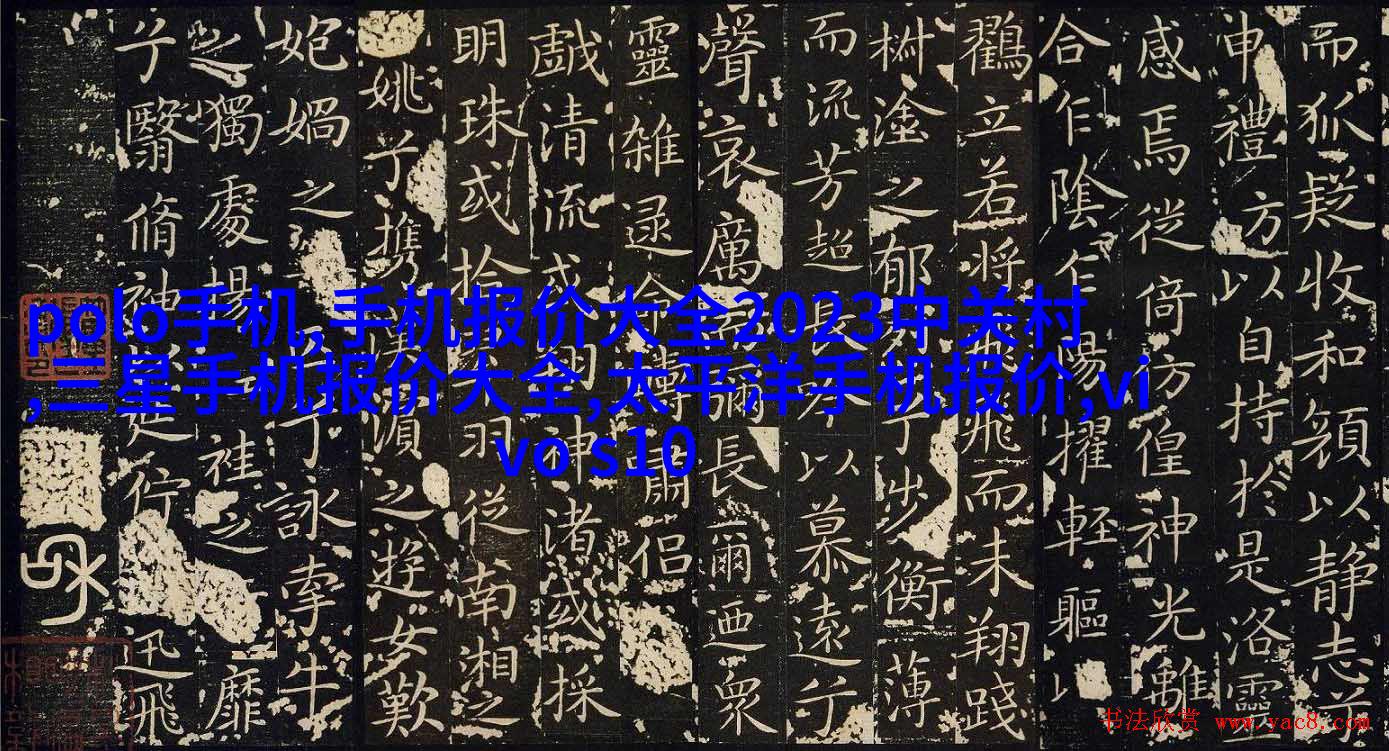 polo手机,手机报价大全2023中关村
,三星手机报价大全,太平洋手机报价,vi
vo s10
而狐疑收和顔以静志兮
申禮方以自持於是洛靈
感焉從倚仿偟神光離
合乍陰乍陽擢輕軀以
鸖立若將飛而未翔踐
塗之郁步衡薄
而流芳超長吟以慕遠兮
聲哀厲而彌長爾迺眾
靈雜遝命疇嘯侣
戯清流或翔神渚或採
明珠或拾翠羽從南湘之
姚兮携漢濱之遊女歎
媧之兮詠牽牛
之獨處揚袿之靡
兮翳脩袖以延佇迅飛
书法欣赏 www.yac8.com